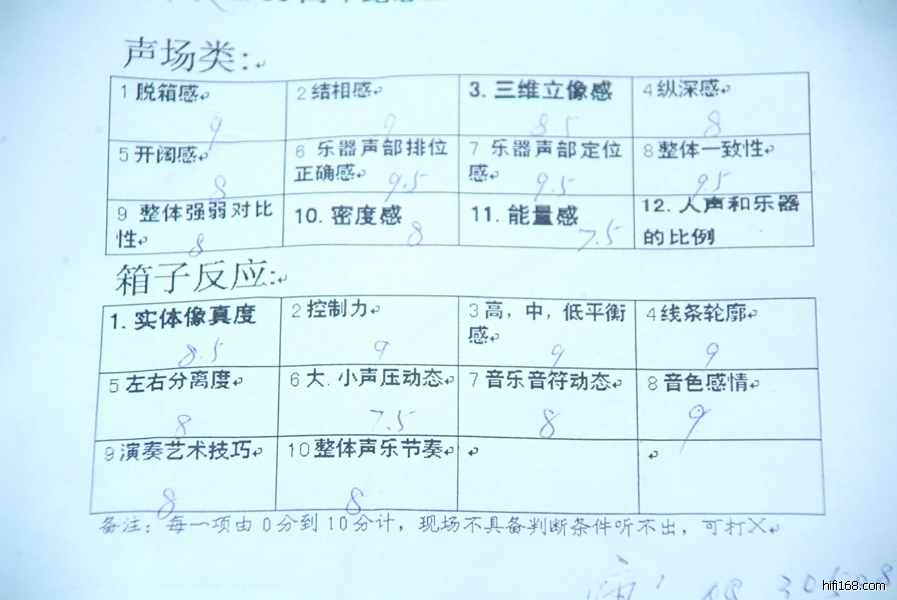 声场类:
1 脱箱感 2 结相感 3. 三维立像感 4 纵深感
9 9 8.5 8
5 开阔感 6 乐器声部排位正确感 7 乐器声部定位感 8 整体一致性
8 9.5 9.5 95
9 整体强弱对比性 10. 密度感 11. 能量感 12. 人声和乐器的比例
8 8 7.5
箱子反应:
1. 实体像真度 2 控制力 3 高，中，低平衡感 4 线条轮廓
8.5 9 9 9
5 左右分离度 6 大. 小声压动态 7 音乐音符动态 8 音色感情
8 7.5 8 9
9 演奏艺术技巧 10 整体声乐节奏
8 8
备注：每一项由 0 分到 10 分计，现场不具备判断条件听不出，可打X
hifi168.com